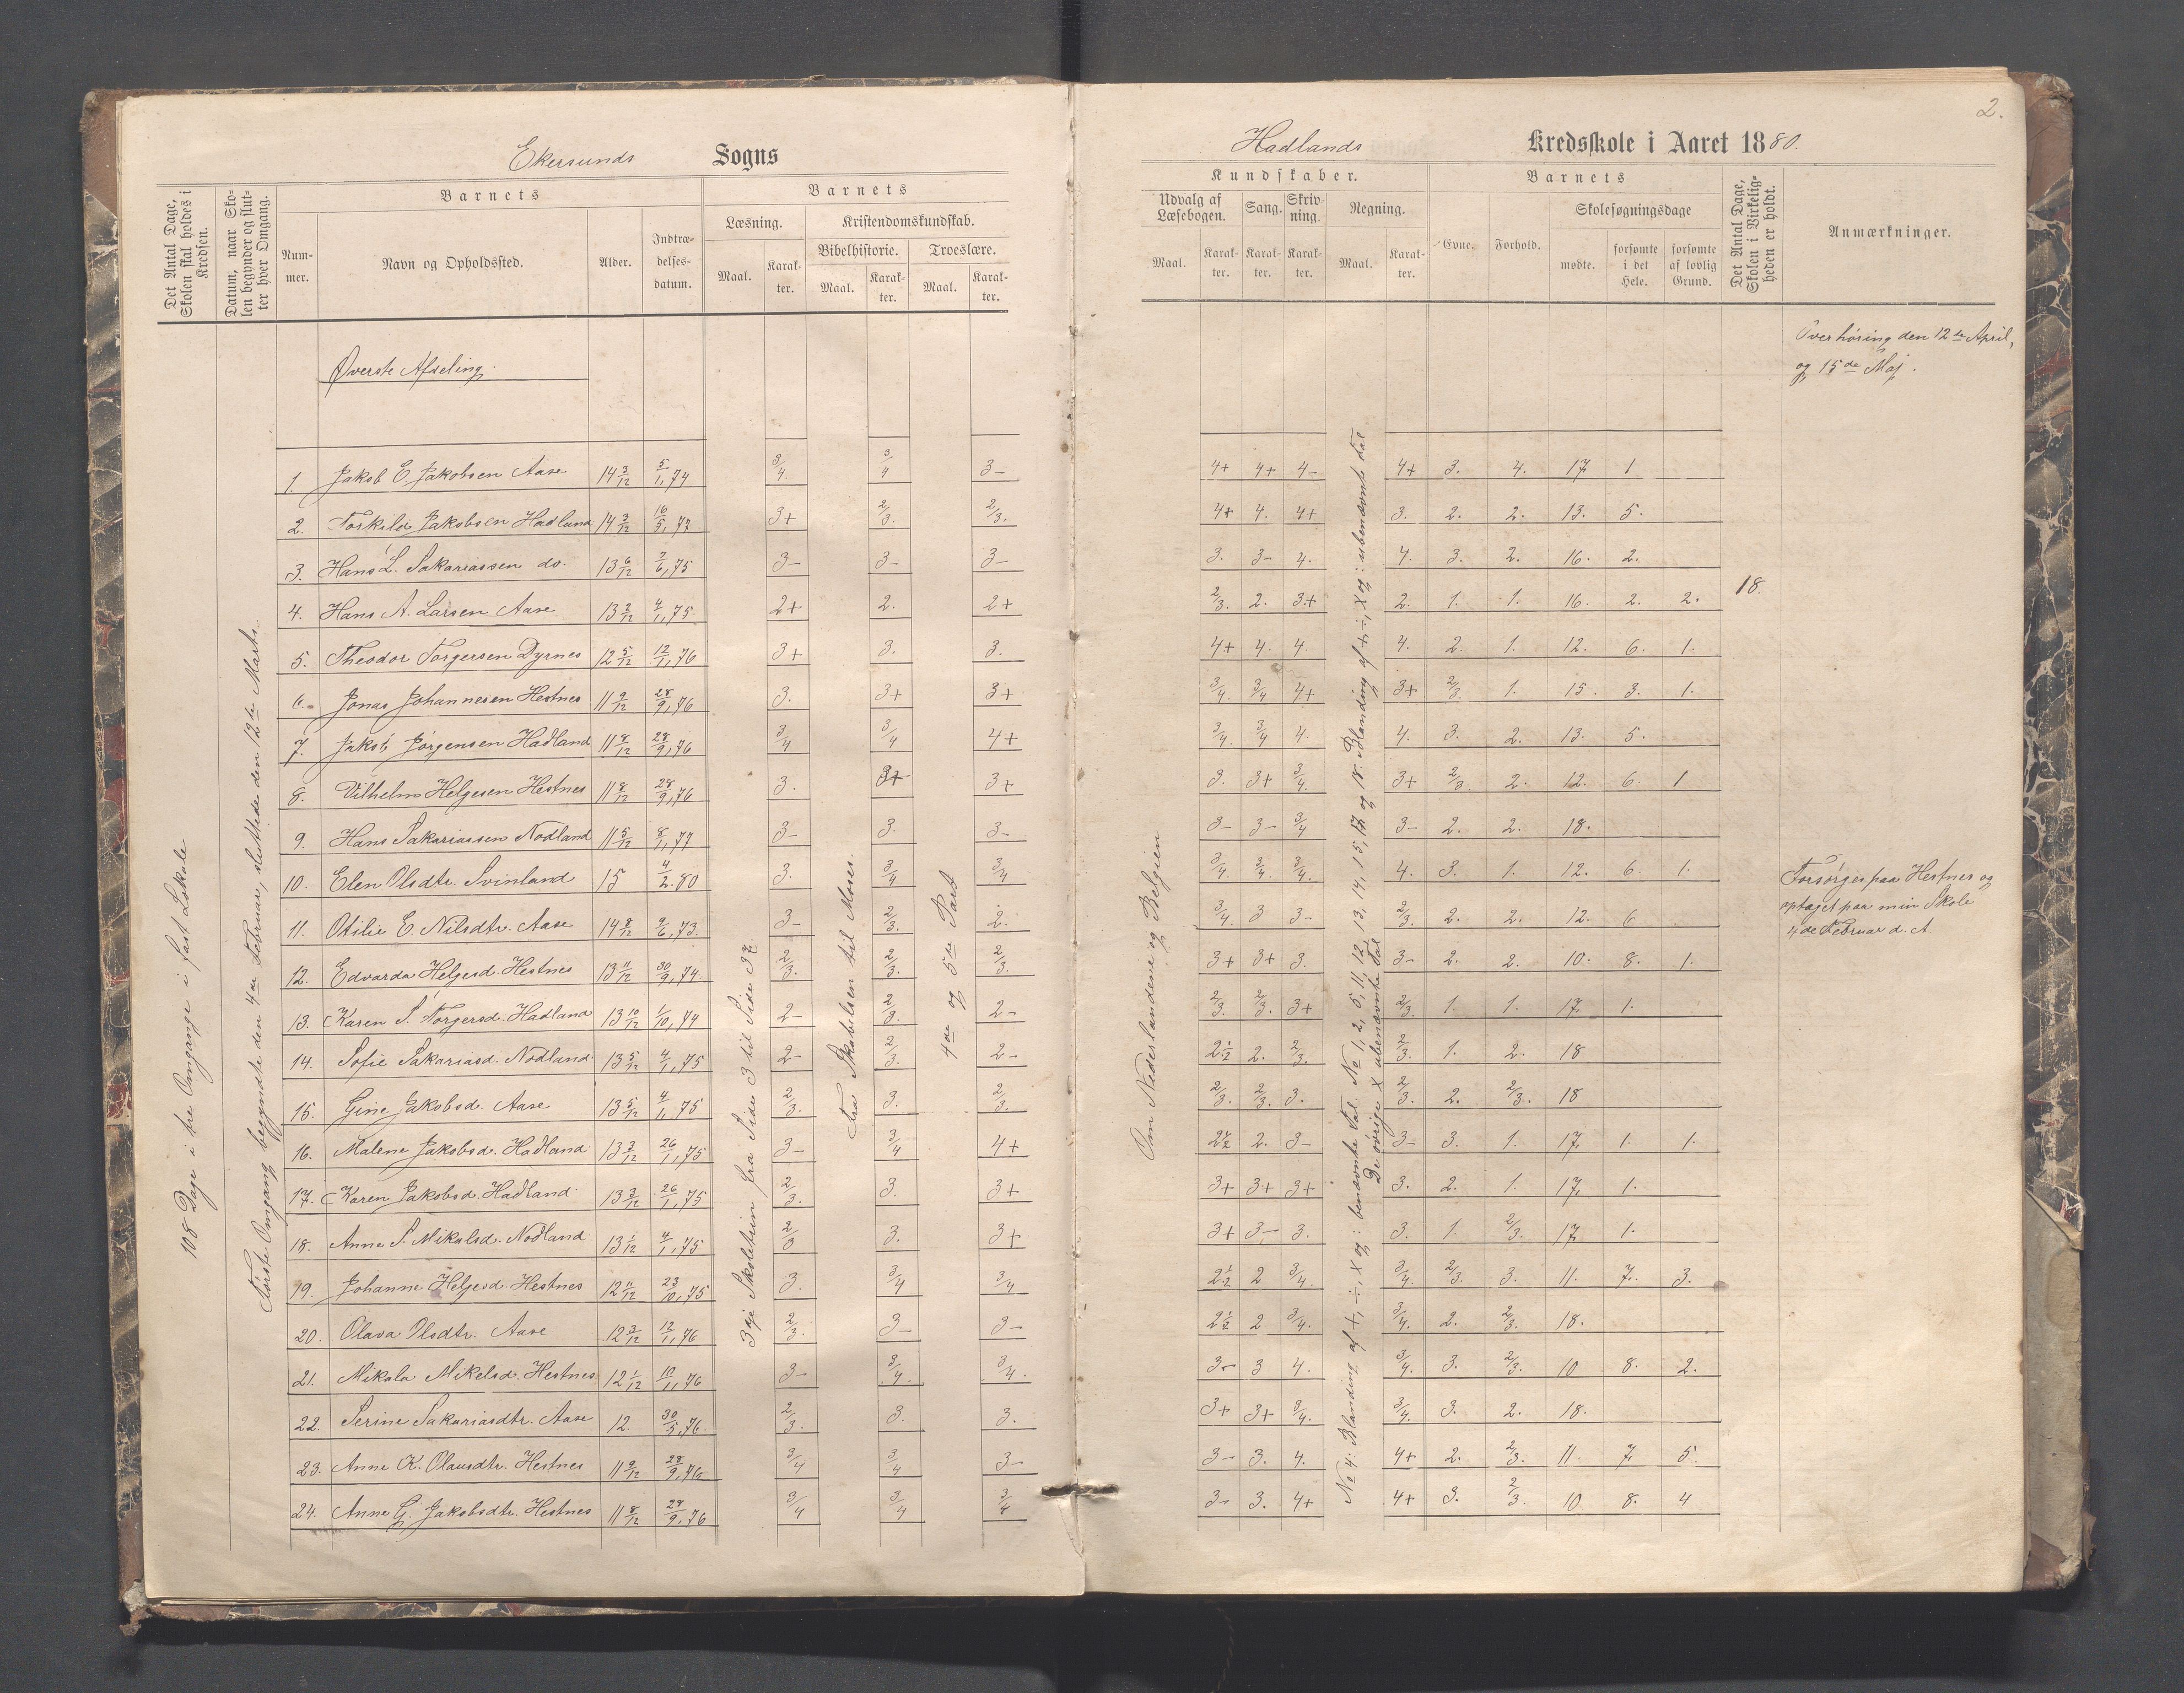 Ekersunds Sogns
Hadlands Kredsskole i Aaret 1880.
2.
Det Antal Dage, Skolen skal holdes i Kredsen.
Datum, naar Skolen begynder og slutter hver Omgang.
Barnets
Nummer.
Navn og Opholdssted.
Alder.
Indtrædelsesdatum.
Barnets
Læsning.
Maal.
Karakter.
Kristendomskundskab.
Bibelhistorie.
Maal.
Karakter.
Troeslære.
Maal.
Karakter.
Kundskaber.
Udvalg af Læsebogen.
Maal.
Karakter.
Sang.
Karakter.
Skrivning.
Karakter.
Regning.
Maal.
Karakter.
Barnets
Evne.
Forhold.
Skolesøgningsdage
mødte.
forsømte i det Hele.
forsømte af lovlig Grund.
Det Antal Dage, Skolen i Virkeligheden er holdt.
Anmærkninger.
Øverste Afdeling.
Overhøring den 12te April,
og 15de Maj.
108 Dage i tre Omgange i fast Lokale
Første Omgang begyndte den 4de Februar, sluttede den 12te Marts.
3dje Skoletrin fra Side 3 til Side 37
Fra Skabelsen til Moses.
4de og 5te Part
Om Nederlandene og Belgien
No 4: Blanding af +, ÷, X og : benævnte Tal. No 1, 2, 5, 11, 12, 13, 14, 15, 17 og 18. Blanding af +, ÷, X og : ubenævnte Tal
De øvrige X ubenævnte Tal
1. Jakob E. Jakobsen Aase 14 3/12 5/1, 74 3/4. 3/4 3- 4+ 4+ 4- 4+ 3. 4. 17 1
2. Torkild Jakobsen Hadland 14 3/12 16/5, 73 3+ 2/3. 2/3. 4+ 4. 4+ 3. 2. 2. 13. 5.
3. Hans L. Sakariassen do. 13 6/12 2/6, 75 3- 3- 3- 3. 3- 4. 4. 3. 2. 16. 2.
4. Hans A. Larsen Aase 13 2/12 4/1, 75. 2+ 2. 2+ 2/3. 2. 3+ 2. 1. 1. 16. 2. 2. 18.
5. Theodor Torgersen Dyrnes 12 5/12 12/1, 76 3+ 3. 3. 4+ 4. 4. 4. 2. 1. 12. 6. 1.
6. Jonas Johannesen Hestnes 11 9/12 28/9, 76 3. 3+ 3+ 3/4 3/4 4+ 3+ 2/3. 1. 15. 3. 1.
7. Jakob Jørgensen Hadland 11 8/12 28/9, 76 3/4 3/4 4+ 3/4. 3/4 4. 4. 3. 2. 13. 5.
8. Vilhelm Helgesen Hestnes 11 8/12 28/9, 76 3. 3+ 3+ 3. 3+ 3/4. 3+ 2/3. 2. 12. 6. 1
9. Hans Sakariassen Nodland 11 5/12 8/1, 77 3- 3. 3- 3- 3- 3/4 3- 2. 2. 18.
10. Elen Olsdtr. Svinland 15 4/2. 80 3. 3/4 3/4 3/4. 3/4. 3/4. 4. 3. 1. 12. 6. 1. Forsørges paa Hestnes og
optaget paa min Skole
4de Februar d. A.
11. Otilie E Nilsdtr. Aase 14 8/12 9/6, 73. 3- 2/3. 2. 3/4. 3 3- 2/3. 2. 2. 12. 6
12. Edvarda Helgesd. Hestnes 13 11/12 30/9, 74. 2/3. 2/3. 2/3. 3+ 3+ 3. 3- 2. 2. 10. 8. 1.
13. Karen S. Torgersd. Hadland 13 10/12 1/10, 74 2- 2/3. 2- 2/3. 2/3. 3+ 2/3. 1. 1. 17. 1.
14. Sofie Sakariasd. Nodland. 13 5/12 4/1, 75 2- 2/3. 2- 2 1/2 2. 2/3. 2/3. 1. 2. 18
15. Gine Jakobsd. Aase 13 5/12 4/1, 75 2/3. 3. 2/3. 2/3. 2/3. 3. 2/3. 2. 2/3. 18
16. Malene Jakobsd. Hadland. 13 3/12 26/1, 75 3- 3/4 4+ 2 1/2 2. 3- 3- 3. 1. 17. 1. 1.
17. Karen Jakobsd. Hadland. 13 3/12 26/1, 75 2/3. 3. 3+ 3+ 3+ 3+ 3. 2. 1. 17. 1.
18. Anne S. Mikalsd. Nodland 13 1/12 4/1, 75 2/3 3. 3+ 3+ 3- 3. 3. 1. 2/3. 17. 1.
19. Johanne Helgesd. Hestnes 12 11/12 23/10, 75 3. 3/4 3/4 2 1/2 2 3/4. 3/4. 2/3. 3. 11. 7. 3.
20. Olava Olsdtr. Aase 12 3/12 12/1, 76 2/3. 3- 3- 2 1/2 2 3/4. 3/4. 2. 2/3. 18.
21. Mikala Mikelsd. Hestnes 12 1/12 10/11, 76 3- 3/4. 3/4. 3- 3 4. 3/4. 3. 2/3. 10 8. 2.
22. Serine Sakariasdtr. Aase 12. 30/5, 76. 2/3. 3. 3. 3+ 3+ 3/4. 3/4. 3. 2. 18.
23. Anne K. Olausdtr. Hestnes 11 9/12 28/9, 76 3/4 3/4 3- 3- 3. 4. 4+ 2. 2/3. 11. 7. 5.
24. Anne G. Jakobsdtr. Hestnes 11 8/12 28/9. 76 3/4 3/4 3/4 3- 3. 4+ 4+ 3. 2/3. 10 8. 4